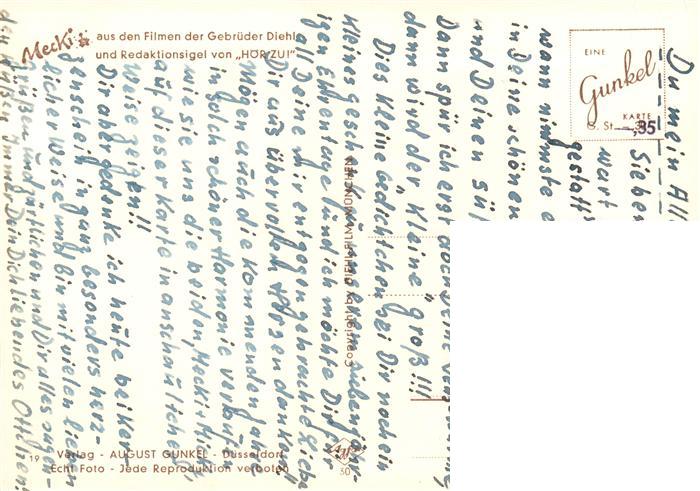 Mecki aus den Filmen der Gebrüder Diehl
und Redaktionsigel von „HÖR ZU!"
EINE
Gunkel
KARTE
S. St. -,35
Copyright by DIEHL-FILM, MÜNCHEN
19
Verlag - AUGUST GUNKEL - Düsseldorf
Echt Foto - Jede Reproduktion verboten
Agfa
30
Du mein All
Sieben
wert
gestatt
wann nimmst
in Deine schönen
und Deinen sü
Dann spür ich erst doch
dann wird der Kleine „groß"!!!
Dies kleine Gedichtchen bei Dir noch ein
kleines Geschenk zu unserem siebenjähr-
igen Ehrentage sein und ich möchte Dir für
all Deine mir entgegengebrachte Liebe
Dir aus übervollem Herzen danken.
Mögen auch die kommenden Jahre
in solch schöner Harmonie verlaufen
wie sie uns die beiden „Mecki + Micki"
auf dieser Karte in anschaulicher
Weise zeigen!!
Dir aber gedenke ich heute bei Ker-
zenschein in ganz besonders herz-
licher Weise und bin mit vielen lieben
Grüßen und zärtlichen und Dir alles
Immer Dein Dich liebendes Ottilchen!